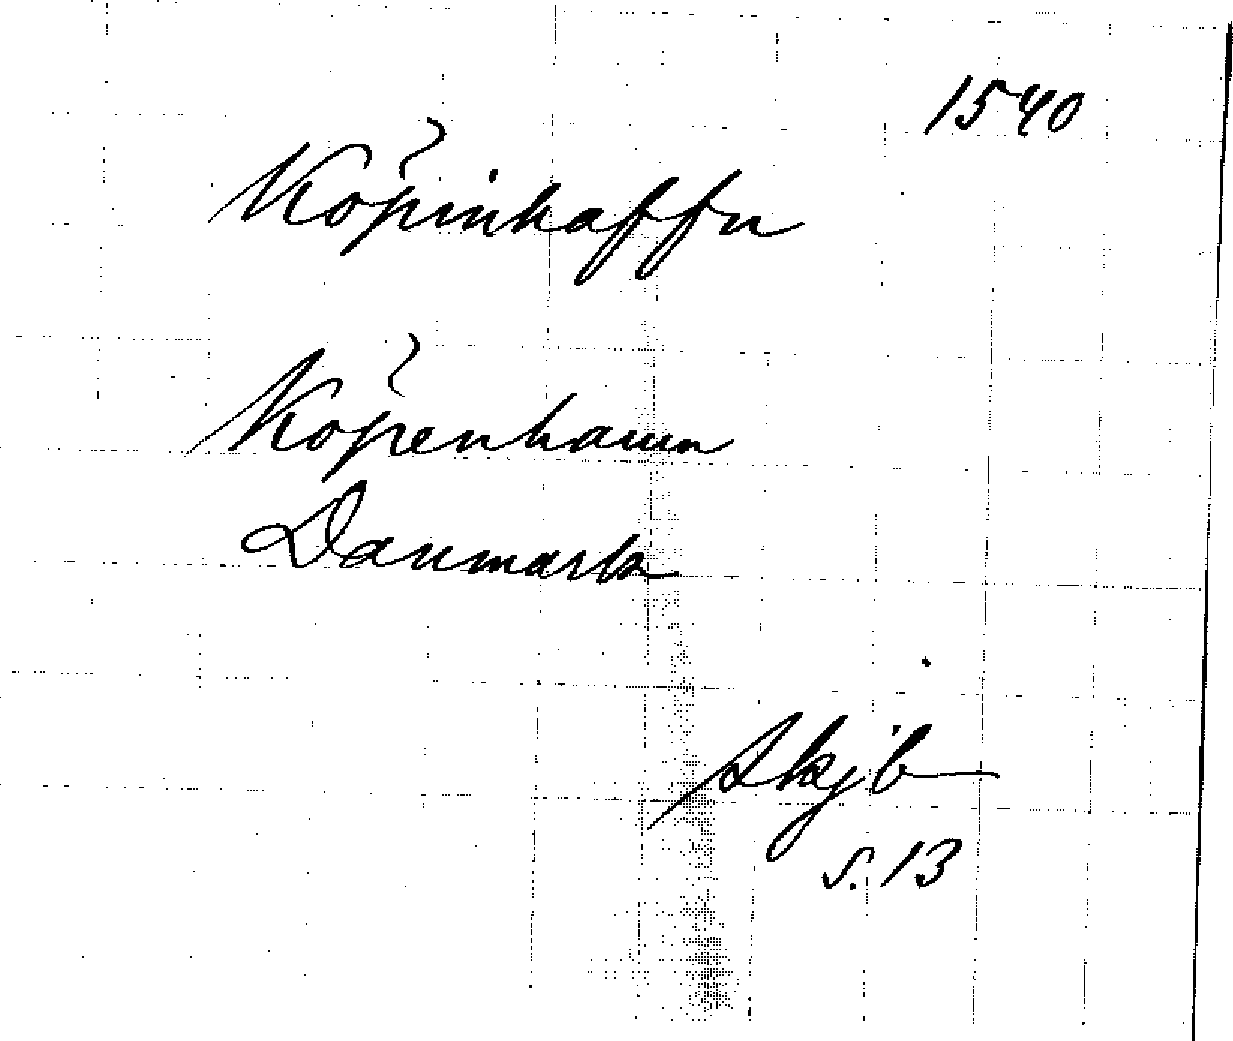 1540
Köpinhaffn
Köpenhamn
Danmark
Skjb
s. 13